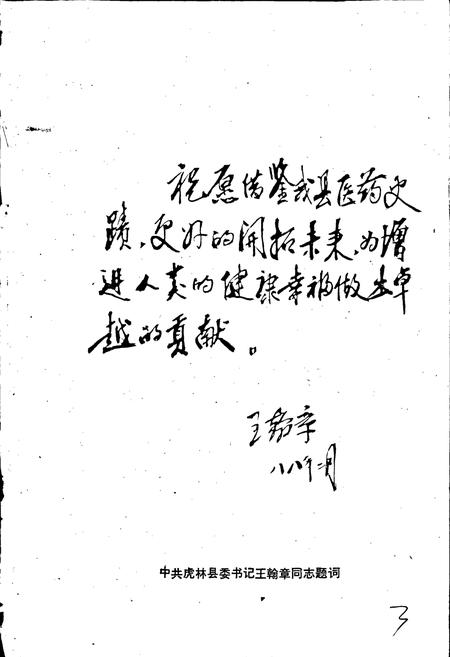 祝愿借鉴我县医药史
蹟，更好的开拓未来，为增
进人类的健康幸福做出卓
越的贡献。
王翰章
八八年二月
中共虎林县委书记王翰章同志题词
3